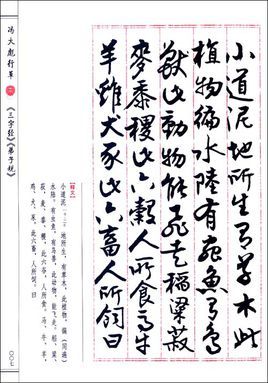 小道泥地所生有草木此
植物徧水陸有蟲魚有鳥
獸此動物能飛走稻粱菽
麥黍稷此六穀人所食马牛
羊雞犬豕此六畜人所飼曰
【释文】
小道泥地所生,有草木,此植物,徧(同遍)
水陆。有虫鱼,有鸟兽,此动物,能飞走。稻、粱、
菽、麦、黍、稷,此六谷,人所食。马、牛、羊、
鸡、犬、豕,此六畜,人所饲。曰
冯大彪行草
《三字经》《弟子规》
〇〇七